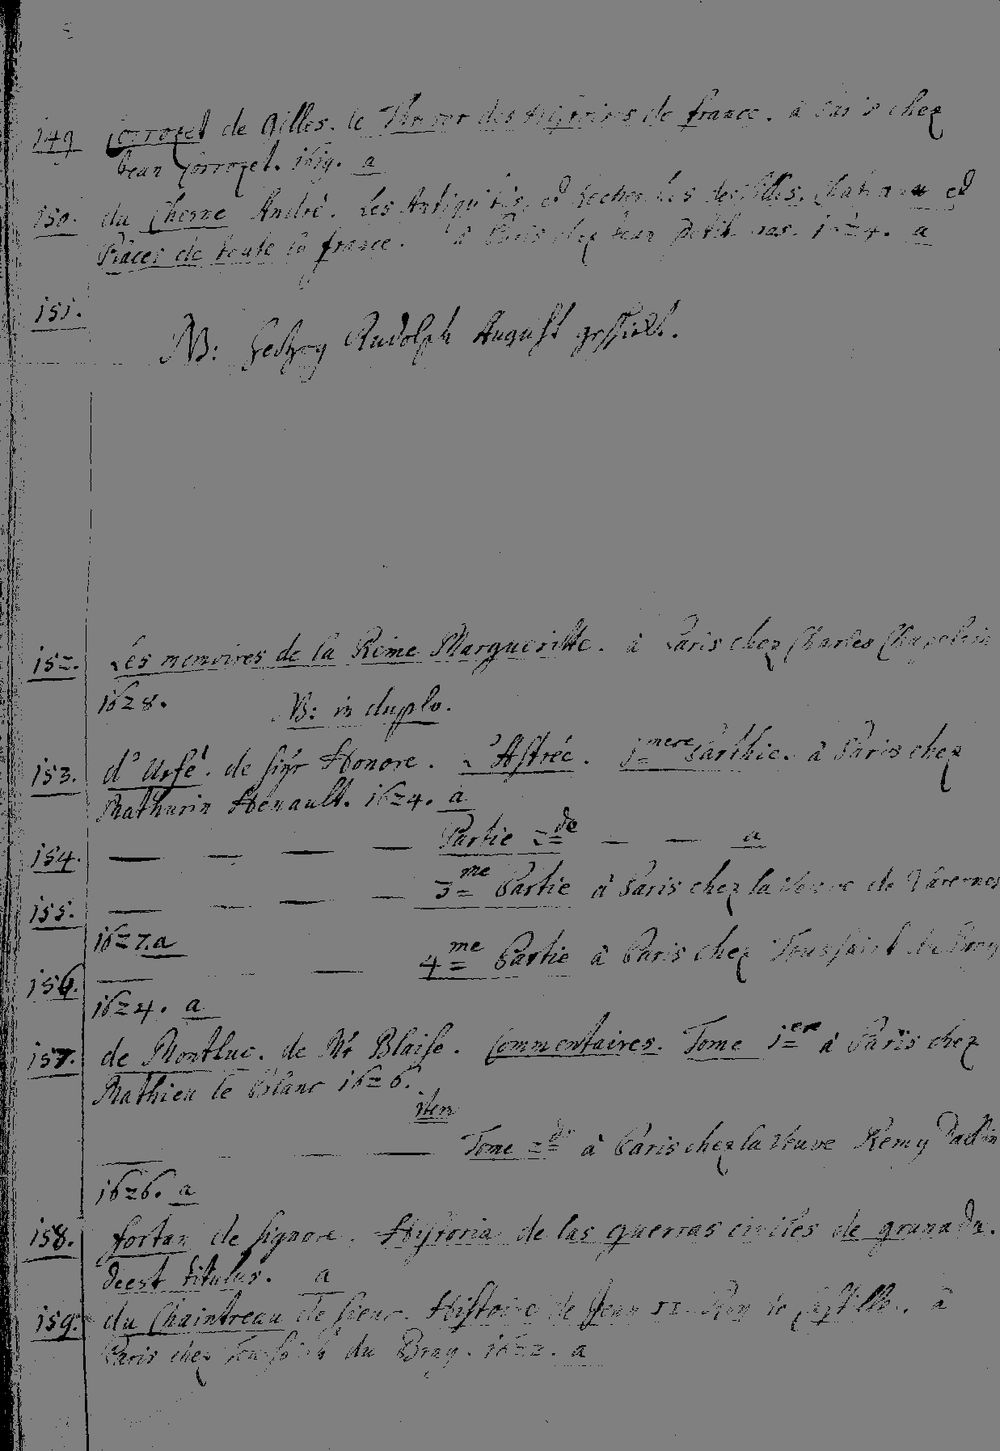 149 Corrozet de Gilles. le Thresor des Histoires de france. à Paris chez
Jean Corrozet. 1619. a
150. du Chesne André. Les Antiquités et Recherches des Villes. Chateaux et
Places de toute la france. à Paris chez Jean petit pas. 1624. a
151.
NB: Hertzog Rudolph August
152. Les memoires de la Reine Margueritte. à Paris chez Charles Chapelain
1628. NB: in duplo.
153. d'Urfé. de sigr Honore. L'Astrée. 1mere Parthie. à Paris chez
Mathurin Henault. 1624. a
154. — — — — Partie 2de — — a
155. — — — — 3me Partie à Paris chez la Veuve de Varennes
1627. a
156. — — 4me Partie à Paris chez Toussaint du Bray
1624. a
157. de Montluc. de Mr Blaise. Commentaires. Tome 1er à Paris chez
Mathieu le Blanc 1626.
item
— — — Tome 2de à Paris chez la Veuve Remy Dallin
1626. a
158. fortan de signore. Historia de las guerras civiles de granada.
deest titulus. a
159. du Chaintreau de sieur. Histoire de Jean II. Roy de Castille. à
Paris chez Toussaint du Bray. 1622. a